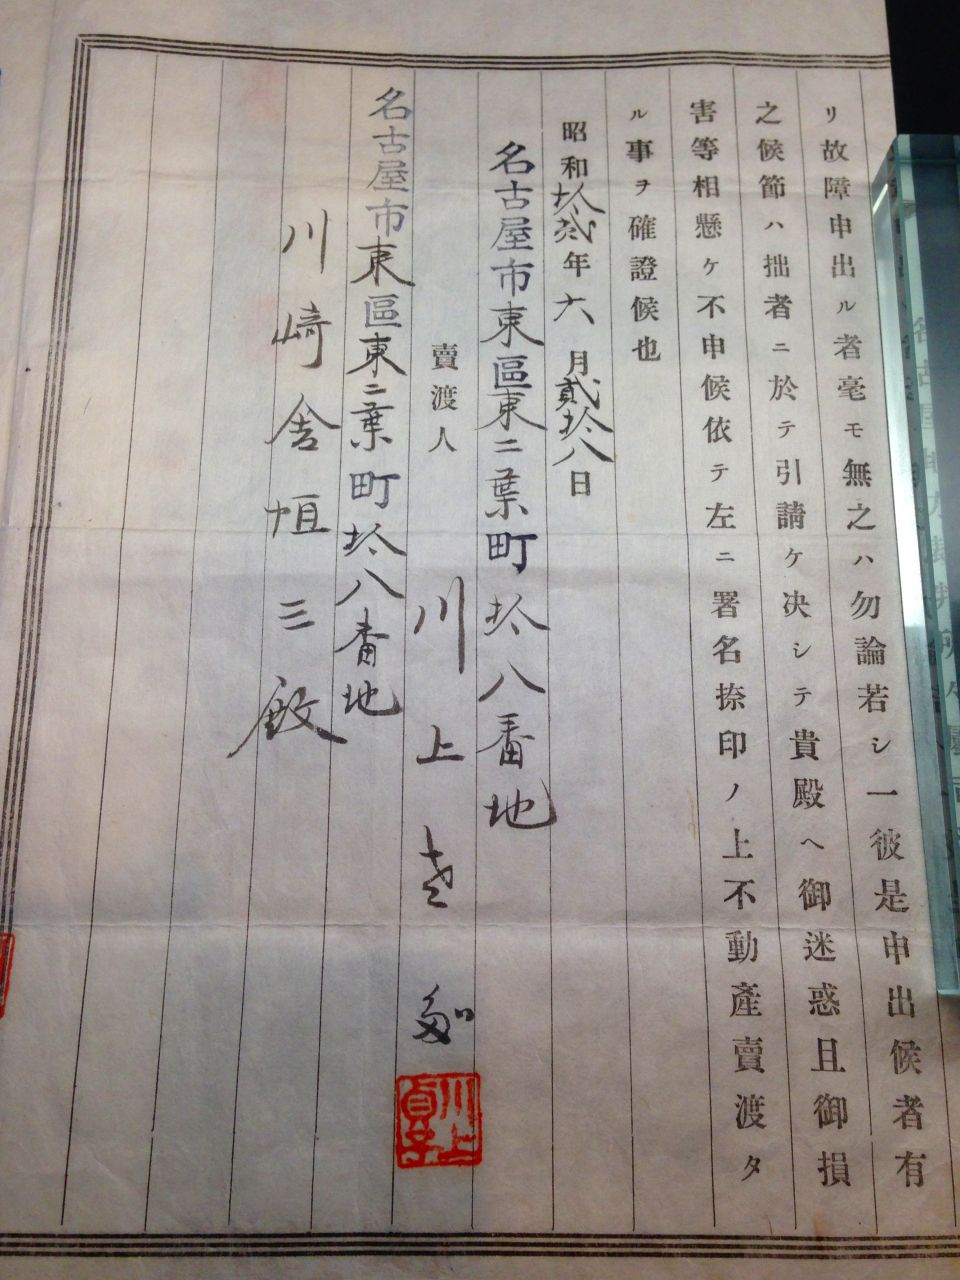 リ故障申出ル者毫モ無之ハ勿論若シ一彼是申出候者有
之候節ハ拙者ニ於テ引請ケ决シテ貴殿ヘ御迷惑且御損
害等相懸ケ不申候依テ左ニ署名捺印ノ上不動產賣渡タ
ル事ヲ確證候也
昭和拾貳年六月貳拾八日
名古屋市東區東二葉町拾八番地
賣渡人 川上
川上貞子
名古屋市東區東二葉町拾八番地
川崎舍恒三殿